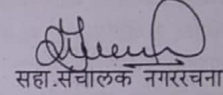 सहा.संचालक नगररचना